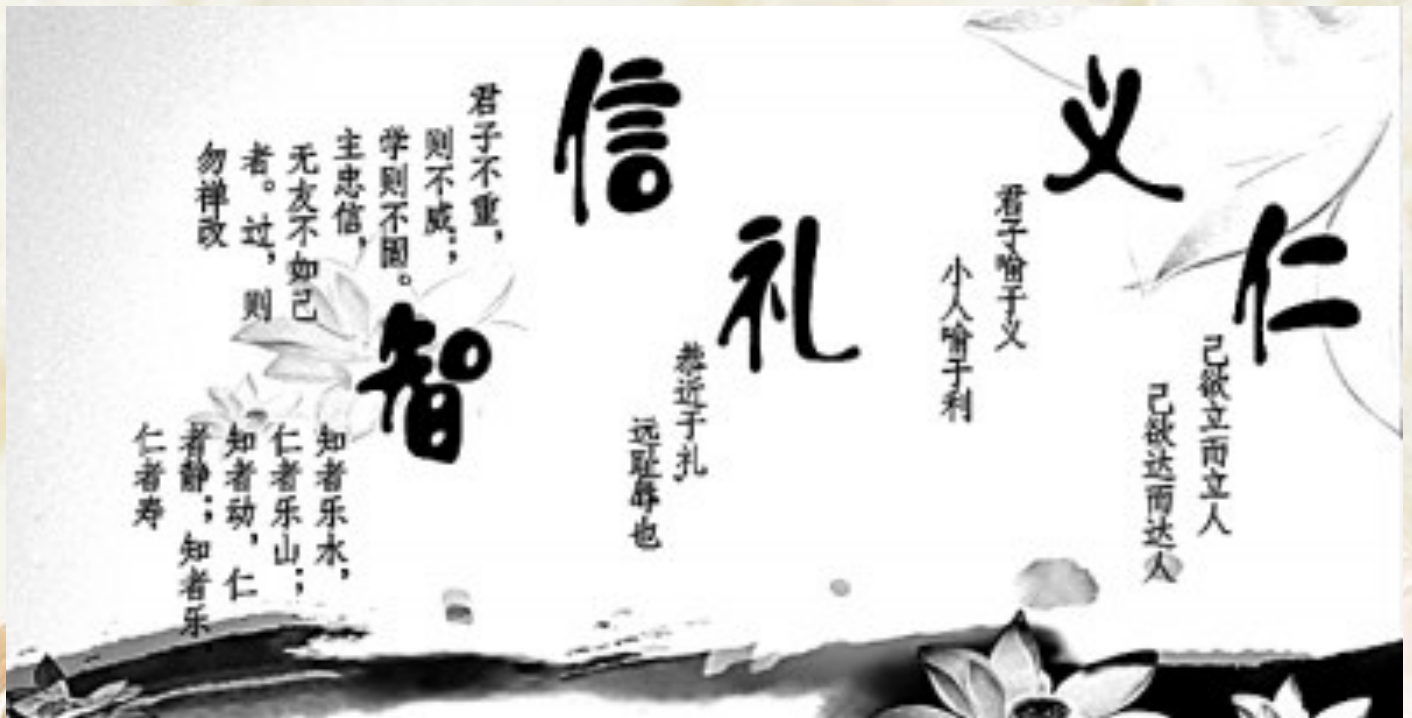 仁
己欲立而立人
己欲达而达人
义
君子喻于义
小人喻于利
礼
恭近于礼
远耻辱也
信
君子不重，
则不威；
学则不圆。
主忠信，
无友不如己
者。过，则
勿禅改
智
知者乐水，
仁者乐山；
知者动，仁
者静；知者乐
仁者寿